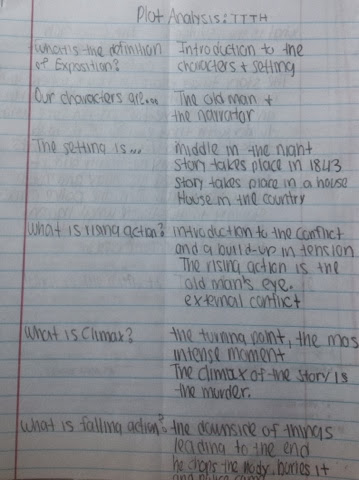 Plot Analysis: TTTH
What is the definition Introduction to the
of Exposition? characters + setting
Our characters are... The old man +
the narrator
The setting is... middle in the night
story takes place in 1843
story takes place in a house
House in the country
What is rising action? introduction to the conflict
and a build-up in tension
The rising action is the
old man's eye.
external conflict
What is Climax? the turning point, the mos
intense moment
The climax of the story is
the murder.
What is falling action? the downside of things
leading to the end
he chops the body, buries it
and police